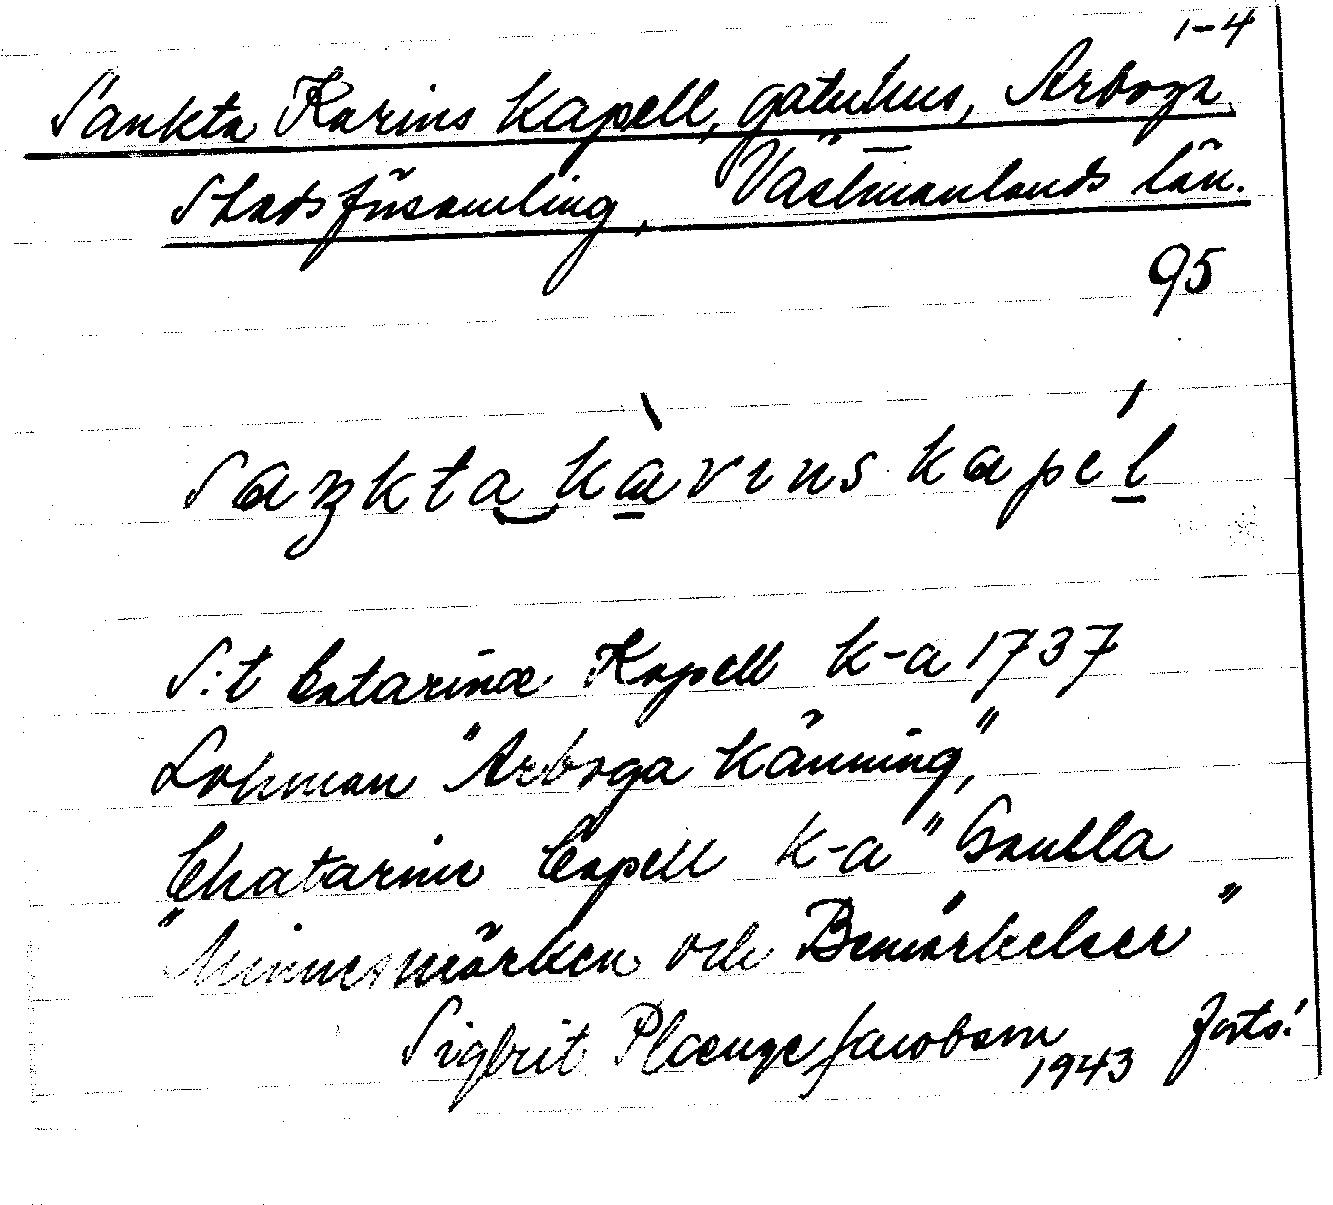 1-4
Sankta Karins Kapell, gatuhus, Arboga
Stadsförsamling, Västmanlands län.
95
Saŋkta kàrins kapél
S:t Catarinæ Kapell k-a 1737
Lohman "Arboga Känning",
Chatarine Capell k-a "Gambla
"Minnesmärken och Bemärkelser"
Sigbrit Plænge Jacobson
1943 forts!